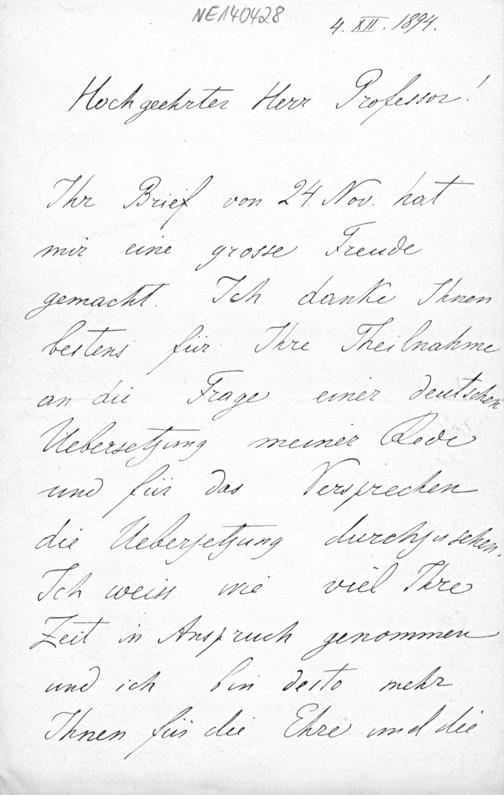 NE140428
4. XII. 1894.
Hochgeehrter Herr Professor!
Ihr Brief von 24 Nov. hat
mir eine grosse Freude
gemacht. Ich danke Ihnen
bestens für Ihre Theilnahme
an die Frage einer deutschen
Uebersetzung meiner Rede
und für das Versprechen
die Uebersetzung durchzusehen.
Ich weiss wie viel Ihre
Zeit in Anspruch genommen
und ich bin desto mehr
Ihnen für die Ehre und die